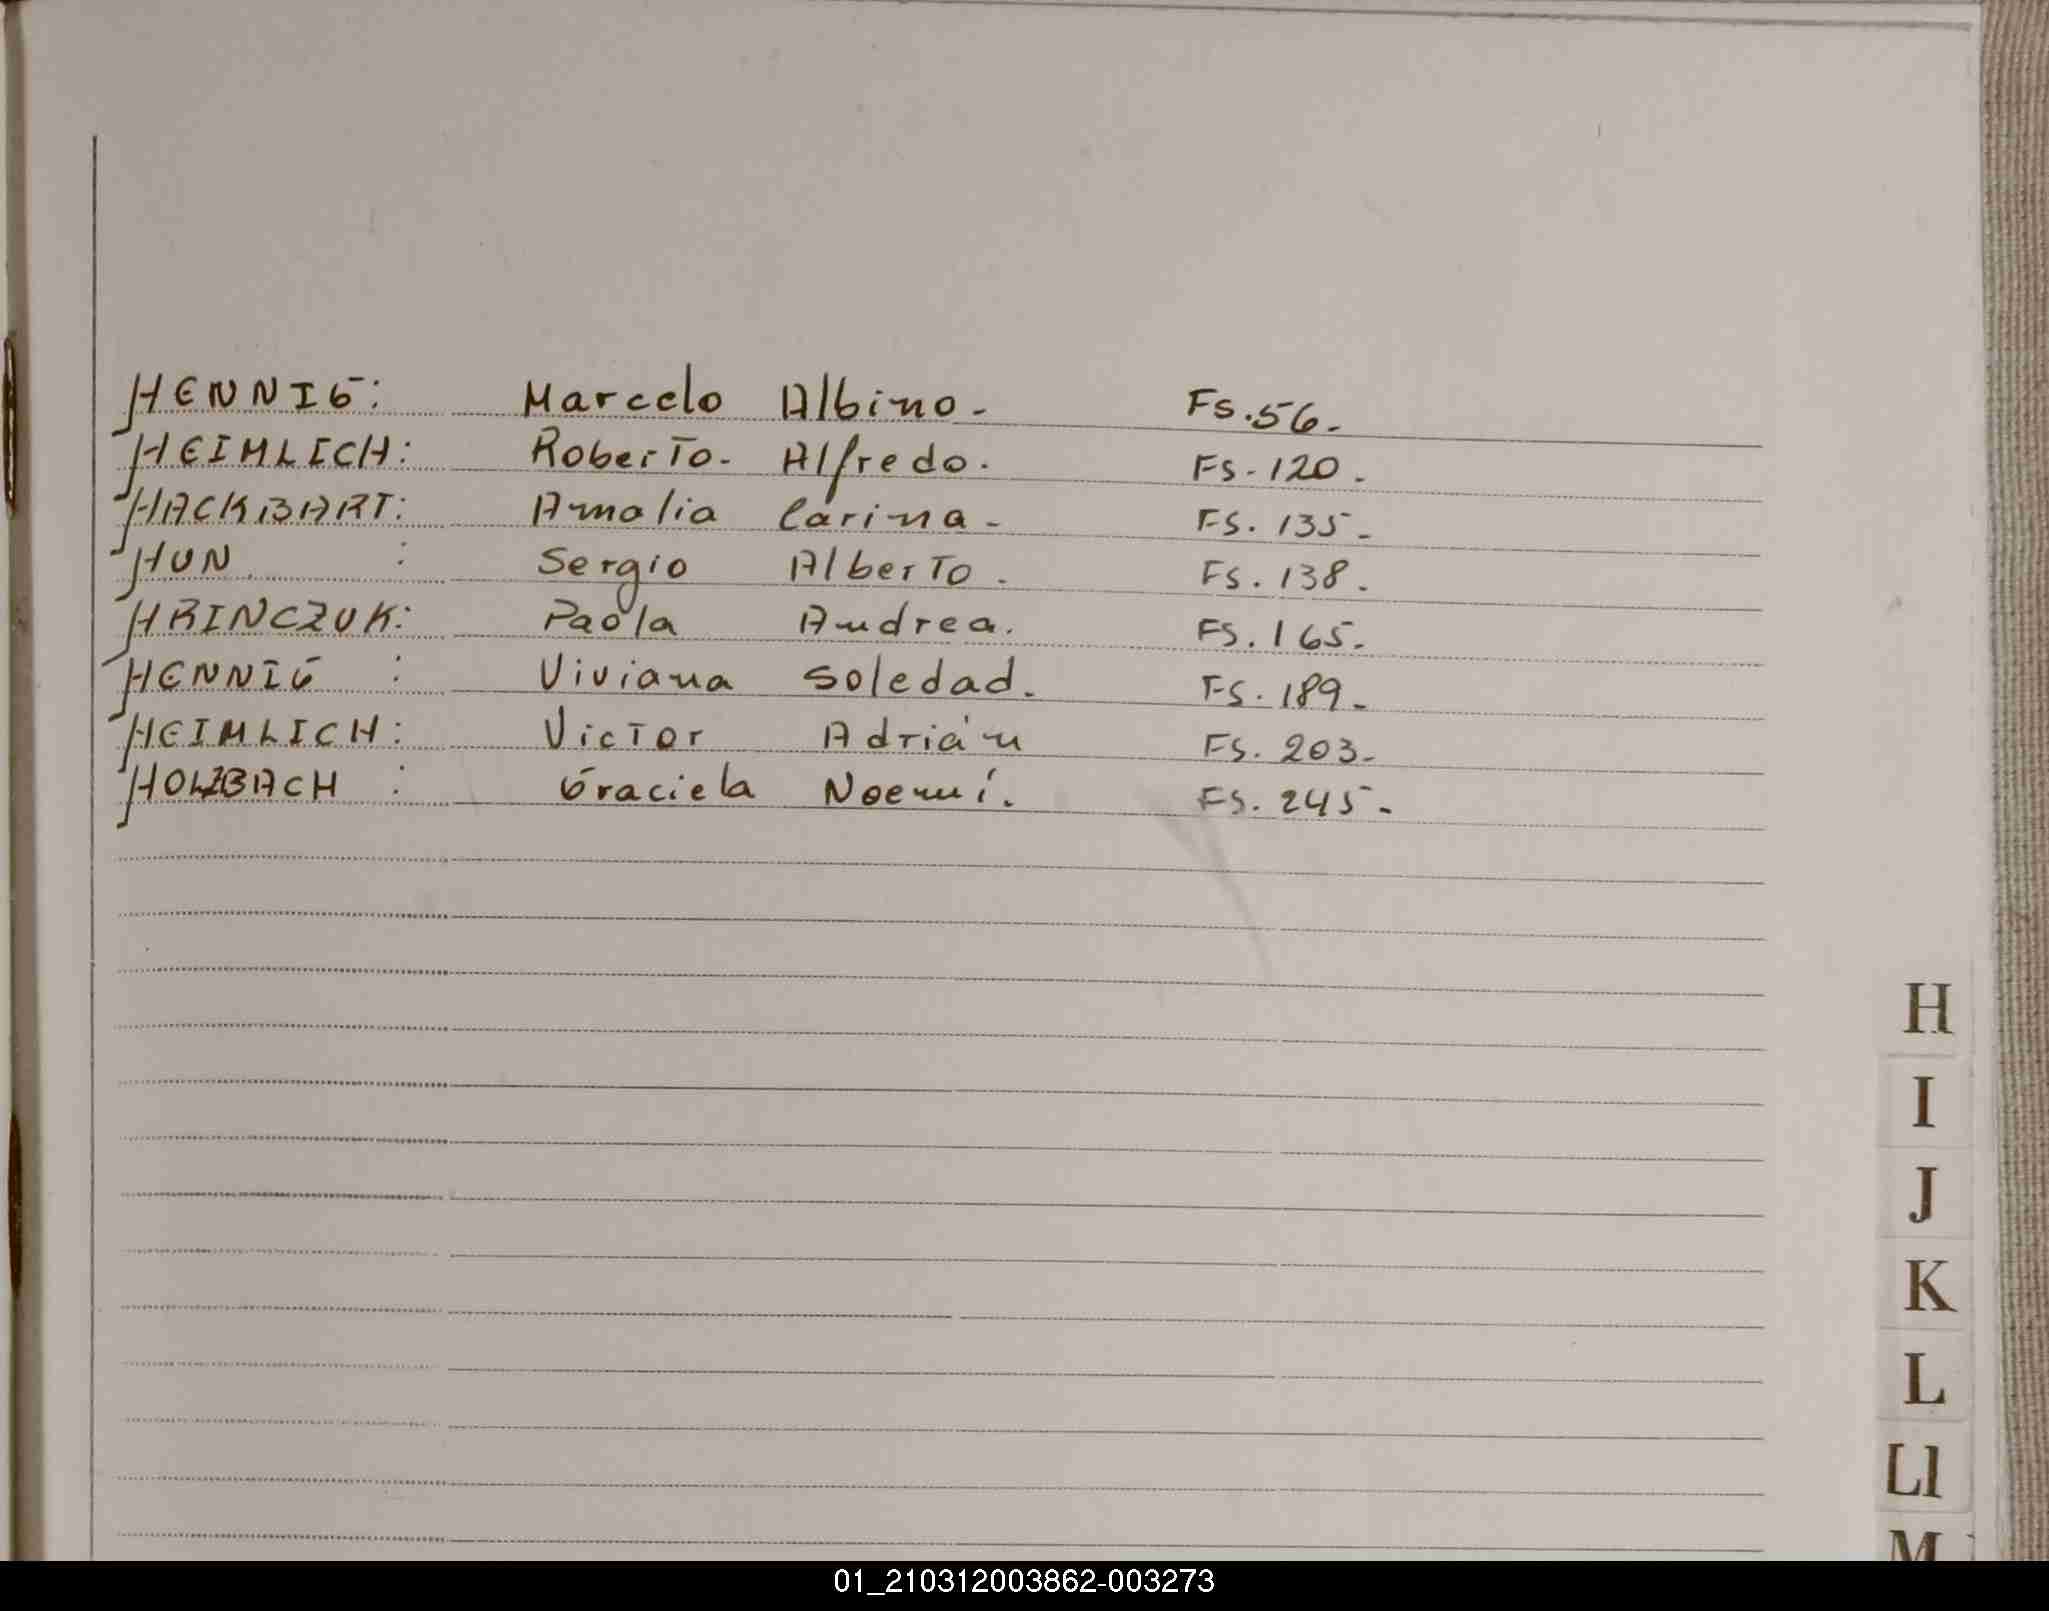 HENNIG: Marcelo Albino- Fs.56-
HEIMLICH: Roberto- Alfredo. Fs-120.
HACKBART: Amalia Carina- Fs. 135-
HUN : Sergio Alberto. Fs. 138.
HRINCZUK: Paola Andrea. Fs. 165-
HENNIG : Viviana Soledad. Fs. 189-
HEIMLICH: Victor Adrián Fs. 203-
HOLZBACH : Graciela Noemí. Fs. 245-
H
I
J
K
L
Ll
M
01_210312003862-003273